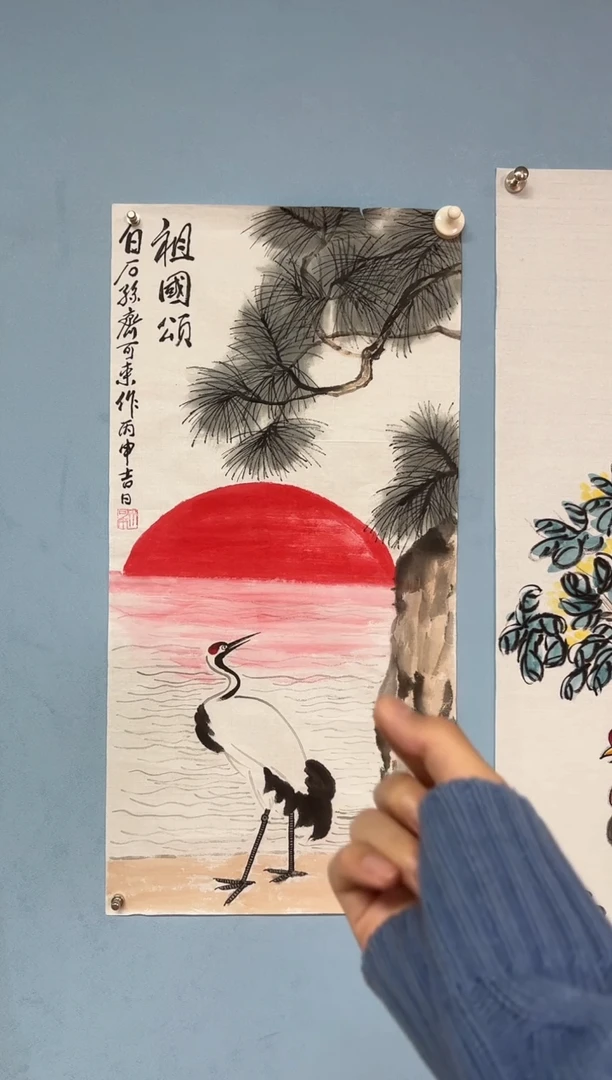 祖國頌
白石孫齊可來作丙申吉日